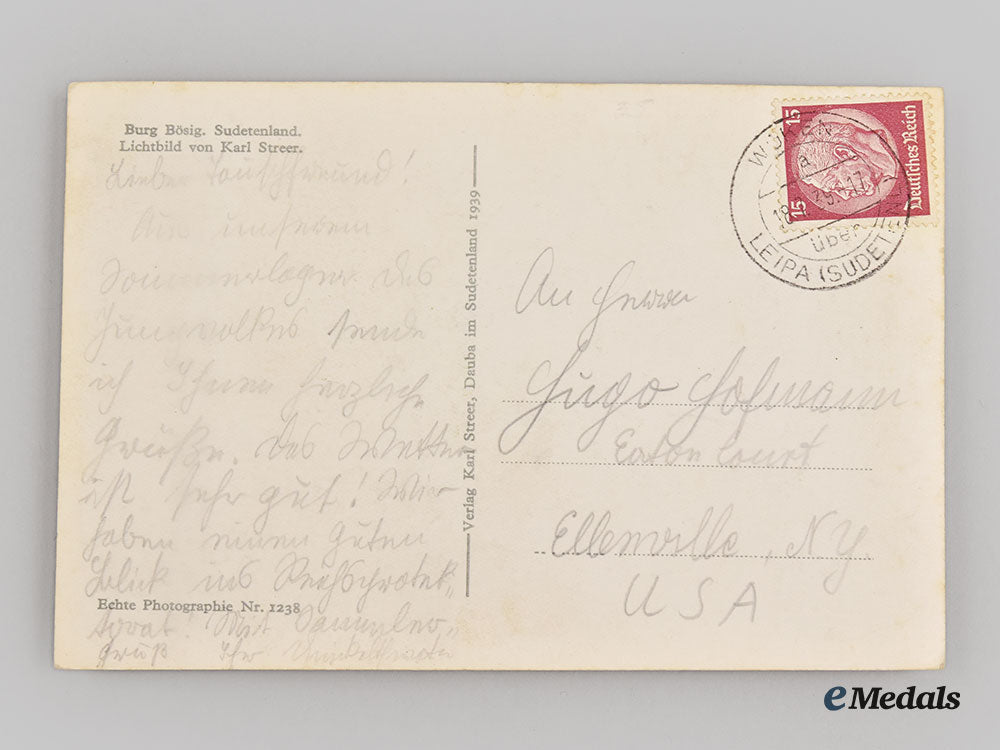 Burg Bösig. Sudetenland.
Lichtbild von Karl Streer.
Lieber Tauschfreund!
Aus unserem
Sommerlager des
Jungvolkes sende
ich Ihnen herzliche
Grüße. Das Wetter
ist sehr gut! Wir
haben einen guten
Blick ins Reichsprotek-
torat! Mit Sammler-
gruß Ihr
Echte Photographie Nr. 1238
Verlag Karl Streer, Dauba im Sudetenland 1939
15 15
Deutsches Reich
über
LEIPA (SUDETENL
An Herrn
Hugo Hofmann
Eaton Court
Ellenville, NY
USA
eMedals